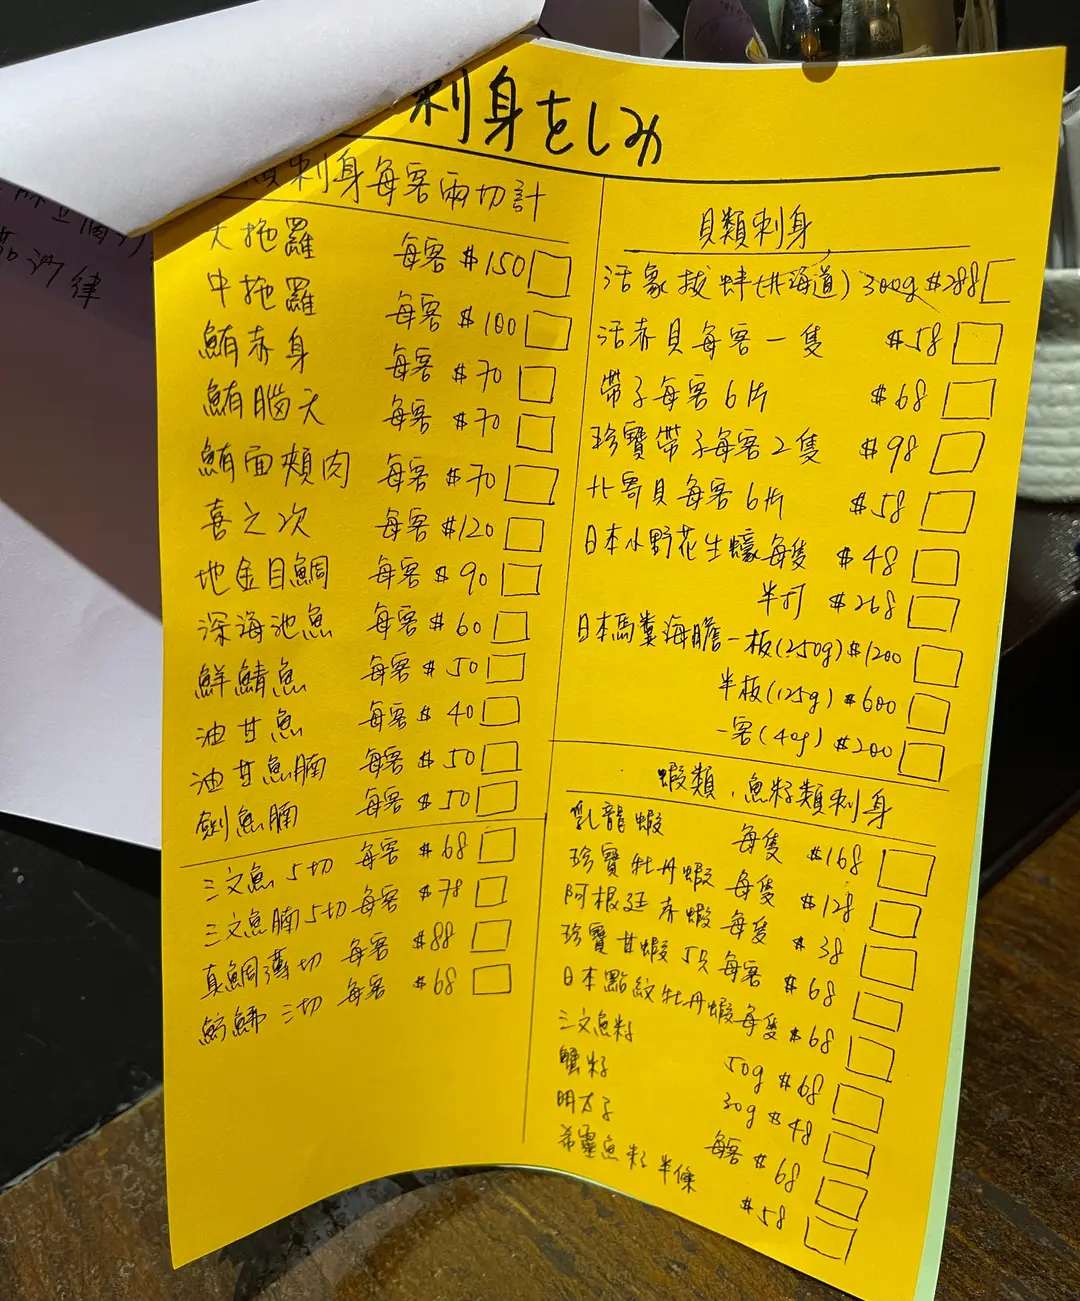 刺身をしみ
刺身每客兩切計
大拖羅 每客 $150
中拖羅 每客 $100
鮪赤身 每客 $70
鮪腦天 每客 $70
鮪面頰肉 每客 $70
喜之次 每客 $120
地金目鯛 每客 $90
深海池魚 每客 $60
鮮鯖魚 每客 $50
油甘魚 每客 $40
油甘魚腩 每客 $50
劍魚腩 每客 $50
三文魚 5切 每客 $68
三文魚腩 5切 每客 $78
真鯛薄切 每客 $88
三切 每客 $68
貝類刺身
活象拔蚌(北海道) 300g $288
活赤貝每客一隻 $58
帶子每客6片 $68
珍寶帶子每客2隻 $98
北寄貝每客6片 $58
日本小野花生蠔每隻 $48
半打 $268
日本馬糞海膽一板(250g) $1200
半板(125g) $600
一客(40g) $200
蝦類．魚籽類刺身
乳龍蝦 每隻 $168
珍寶牡丹蝦 每隻 $128
阿根廷赤蝦 每隻 $38
珍寶甘蝦 5只 每客 $68
日本點紋牡丹蝦每隻 $68
三文魚籽 50g $68
蟹籽 30g $48
明太子 每客 $68
希靈魚籽 半條 $58
沙律